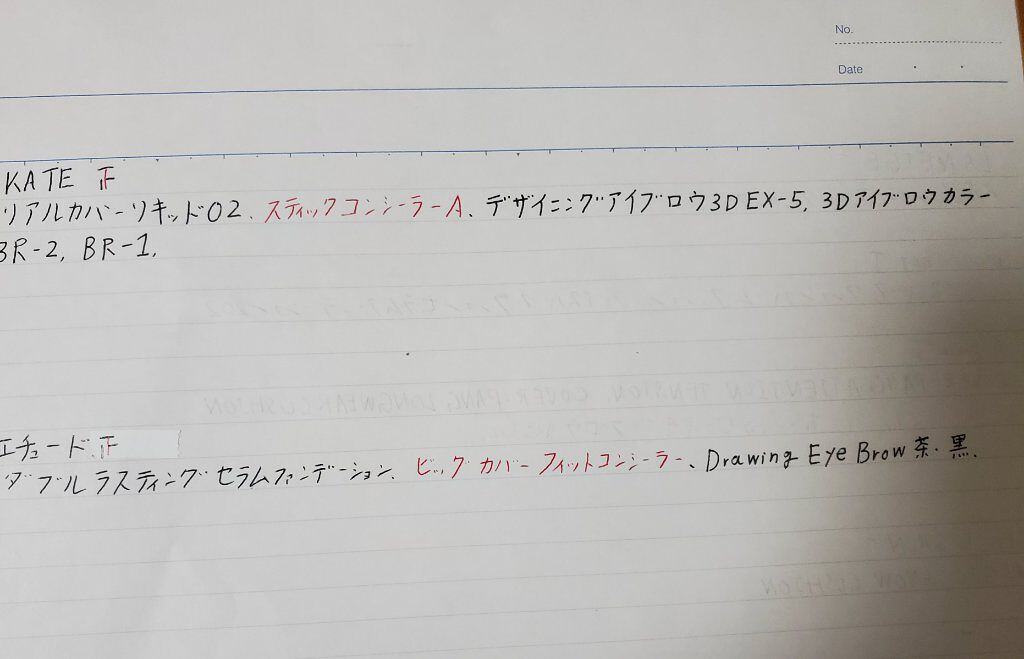 No.
Date
KATE 正
リアルカバーリキッド02、スティックコンシーラーA、デザイニングアイブロウ3D EX-5, 3Dアイブロウカラー
BR-2, BR-1,
エチュード 正
ダブルラスティングセラムファンデーション、ビッグカバーフィットコンシーラー、Drawing Eye Brow 茶・黒、